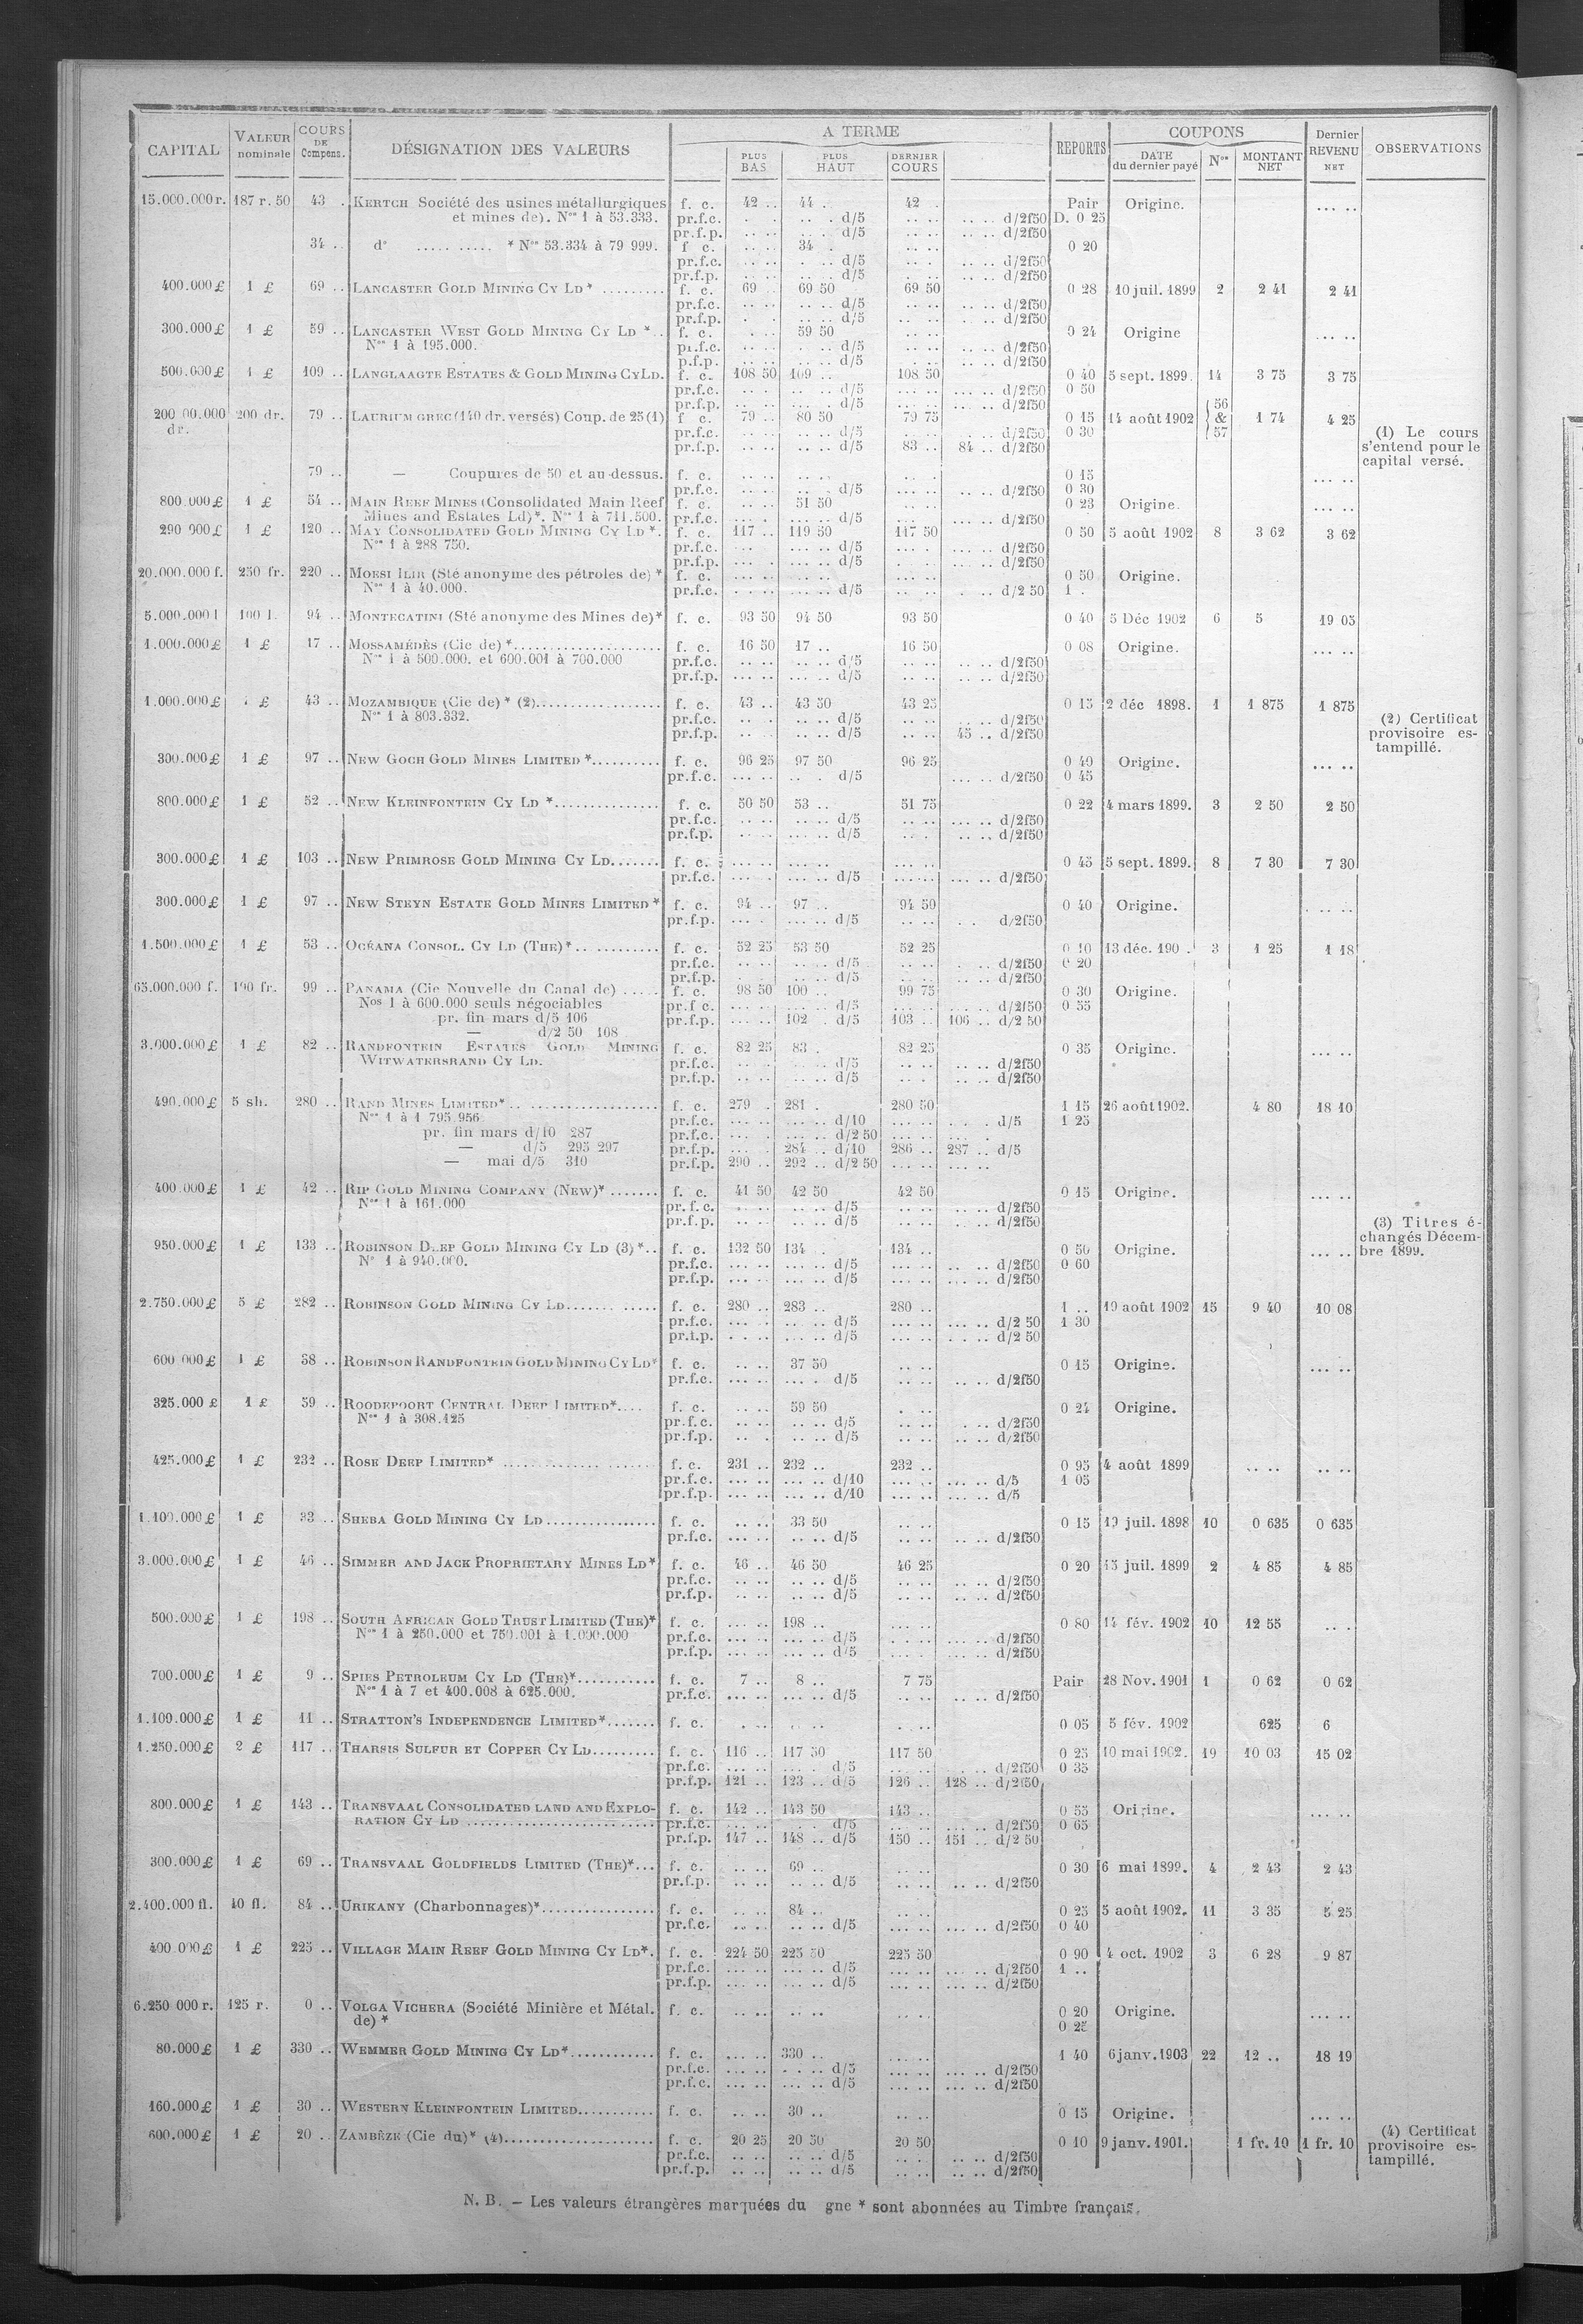 CAPITAL | VALEUR nominale | COURS DE Compens. | DÉSIGNATION DES VALEURS | A TERME | PLUS BAS | PLUS HAUT | DERNIER COURS | REPORTS | COUPONS | DATE du dernier payé | Nos | MONTANT NET | Dernier REVENU NET | OBSERVATIONS
15.000.000 r. 187 r. 50 43 . KERTCH Société des usines métallurgiques f. c. 42 .. 44 . 42 . Pair Origine. ... ..
et mines de). Nos 1 à 53.333. pr.f.c. . . .. . d/5 .. .. .. .. d/2f50 D. 0 25
pr.f.p. .. .. .. .. d/5 .. .. .. .. d/2f50
34 .. do ..... ..... * Nos 53.334 à 79 999. f c. .. .. 34 . .. .. 0 20
pr.f.c. .. .. . .. d/5 .. . .. .. d/2f50
pr.f.p. .. .. .. .. d/5 . .. .. .. d/2f50
400.000 £ 1 £ 69 .. LANCASTER GOLD MINING CY LD * ......... f. c. 69 .. 69 50 69 50 0 28 10 juil. 1899 2 2 41 2 41
pr.f.c. .. .. .. .. d/5 .. .. .. .. d/2f50
pr.f.p. . . .. .. d/5 .. .. .. .. d/2f50
300.000 £ 1 £ 59 .. LANCASTER WEST GOLD MINING CY LD *.. f. c. . .. 59 50 .. .. 0 24 Origine ... ..
Nos 1 à 195.000. pr.f.c. .. .. . .. d/5 .. .. .. .. d/2f50
p.f.p. .. .. .. .. d/5 .. .. .. .. d/2f50
500.000 £ 1 £ 109 .. LANGLAAGTE ESTATES & GOLD MINING CY LD. f. c. 108 50 109 .. 108 50 0 40 5 sept. 1899. 14 3 75 3 75
pr.f.c. .. .. . .. d/5 .. .. ... .. d/2f50 0 50
pr.f.p. .. .. ... . d/5 .. .. ... .. d/2f50
200 00.000 dr. 200 dr. 79 .. LAURIUM GREC (140 dr. versés) Coup. de 25 (1) f c. 79 .. 80 50 79 75 0 15 14 août 1902 56 & 57 1 74 4 25
pr.f.c. .. .. .. .. d/5 .. . . .. d/2f50 0 30 (1) Le cours
pr.f.p. .. .. .. .. d/5 83 .. 84 .. d/2f50 s'entend pour le
capital versé.
79 .. — Coupures de 50 et au-dessus. f. c. .. .. .. .. .. . 0 15 ... ..
pr.f.c. .. .. .. . d/5 ... .. .. .. d/2f50 0 30
800.000 £ 1 £ 54 .. MAIN REEF MINES (Consolidated Main Reef f. c. .. .. 51 50 .. .. 0 23 Origine. ... ..
Mines and Estates Ld)*. Nos 1 à 711.500. pr.f.c. ... . ... .. d/5 ... . ... .. d/2f50
290 000 £ 1 £ 120 .. MAY CONSOLIDATED GOLD MINING CY LD *. f. c. 117 .. 119 50 117 50 0 50 5 août 1902 8 3 62 3 62
Nos 1 à 288 750. pr.f.c. ... ... .. d/5 ... . ... .. d/2f50
pr.f.p. ... . ... .. d/5 .. .. .. .. d/2f50
20.000.000 f. 250 fr. 220 .. MOESI ILIR (Sté anonyme des pétroles de) * f. c. ... .. ... .. ... .. 0 50 Origine.
Nos 1 à 40.000. pr.f.c. . . .. ... .. d/5 .. .. . .. d/2 50 1 .
5.000.000 l 100 l. 94 .. MONTECATINI (Sté anonyme des Mines de)* f. c. 93 50 94 50 93 50 0 40 5 Déc 1902 6 5 19 05
1.000.000 £ 1 £ 17 .. MOSSAMÉDÈS (Cie de) *..................... f. c. 16 50 17 .. 16 50 0 08 Origine. ... ..
Nos 1 à 500.000. et 600.001 à 700.000 pr.f.c. .. .. ... .. d/5 .. .. .. .. d/2f50
pr.f.p. ... .. ... .. d/5 .. .. .. .. d/2f50
1.000.000 £ £ 43 .. MOZAMBIQUE (Cie de) * (2)................. f. c. 43 .. 43 50 43 25 0 15 2 déc 1898. 1 1 875 1 875
Nos 1 à 803.332. pr.f.c. .. . .. .. d/5 .. .. .. .. d/2f50 (2) Certificat
pr.f.p. .. .. .. .. d/5 .. .. 45 .. d/2f50 provisoire es-
tampillé.
300.000 £ 1 £ 97 .. NEW GOCH GOLD MINES LIMITED *.......... f. c. 96 25 97 50 96 25 0 40 Origine. ... ..
pr.f.c. ... .. .. . d/5 ... .. d/2f50 0 45
800.000 £ 1 £ 52 .. NEW KLEINFONTEIN CY LD *............... f. c. 50 50 53 .. 51 75 0 22 4 mars 1899. 3 2 50 2 50
pr.f.c. .. .. ... .. d/5 .. .. ... .. d/2f50
pr.f.p. .. .. ... .. d/5 .. . .. .. d/2f50
300.000 £ 1 £ 103 .. NEW PRIMROSE GOLD MINING CY LD....... f. c. ... .. ... .. ... .. 0 45 5 sept. 1899. 8 7 30 7 30
pr.f.c. ... . ... .. d/5 ... .. ... .. d/2f50
300.000 £ 1 £ 97 .. NEW STEYN ESTATE GOLD MINES LIMITED * f. c. 94 .. 97 .. 94 50 0 40 Origine. .. ..
pr.f.p. ... . ... .. d/5 .. .. . d/2f50
1.500.000 £ 1 £ 53 .. OCÉANA CONSOL. CY LD (THE)*.. .......... f. c. 52 25 53 50 52 25 0 10 13 déc. 190 . 3 1 25 1 18
pr.f.c. .. .. .. .. d/5 .. .. . .. d/2f50 0 20
pr.f.p. . .. .. .. d/5 .. .. .. .. d/2f50
65.000.000 f. 100 fr. 99 .. PANAMA (Cie Nouvelle du Canal de) ..... f. c. 98 50 100 .. 99 75 0 30 Origine.
Nos 1 à 600.000 seuls négociables pr.f c. ... .. ... .. d/5 ... .. ... .. d/2f50 0 55
pr. fin mars d/5 106 pr.f.p. ... .. 102 . d/5 103 .. 106 .. d/2 50
— d/2 50 108
3.000.000 £ 1 £ 82 .. RANDFONTEIN ESTATES GOLD MINING f. c. 82 25 83 . 82 25 0 35 Origine. ... ..
WITWATERSRAND CY LD. pr.f.c. .. . . .. d/5 .. .. .. .. d/2f50
pr.f.p. .. .. .. .. d/5 .. . .. .. d/2f50
490.000 £ 5 sh. 280 .. RAND MINES LIMITED*.. .................. f. c. 279 . 281 . 280 50 1 15 26 août 1902. 4 80 18 10
Nos 1 à 1 795 956 pr.f.c. ... .. ... .. d/10 ... .. . . . d/5 1 25
pr. fin mars d/10 287 pr.f.c. ... . ... .. d/2 50 ... .. ... .
— d/5 295 297 pr.f.p. ... . 284 .. d/10 286 .. 287 .. d/5
— mai d/5 310 pr.f.p. 290 .. 292 .. d/2 50 ... .. ... ..
400.000 £ 1 £ 42 .. RIP GOLD MINING COMPANY (NEW)* ....... f. c. 41 50 42 50 42 50 0 15 Origine. ... ..
Nos 1 à 161.000 pr. f. c. . .. .. .. d/5 .. .. .. .. d/2f50
pr.f.p. .. .. .. .. d/5 .. .. .. .. d/2f50 (3) Titres é-
changés Décem-
950.000 £ 1 £ 133 .. ROBINSON DEEP GOLD MINING CY LD (3) *.. f. c. 132 50 134 .. 134 .. 0 50 Origine. ... .. bre 1899.
No 1 à 940.000. pr.f.c. ... .. ... .. d/5 ... .. .. .. d/2f50 0 60
pr.f.p. ... .. ... .. d/5 ... .. ... .. d/2f50
2.750.000 £ 5 £ 282 .. ROBINSON GOLD MINING CY LD....... ..... f. c. 280 .. 283 .. 280 .. 1 .. 19 août 1902 15 9 40 10 08
pr.f.c. ... . .. .. d/5 ... .. ... .. d/2 50 1 30
pr.f.p. . . .. ... .. d/5 ... .. . . .. d/2 50
600 000 £ 1 £ 38 .. ROBINSON RANDFONTEIN GOLD MINING CY LD* f. c. .. .. 37 50 .. .. 0 15 Origine. ... ..
pr.f.c. ... .. ... . d/5 .. .. .. .. d/2f50
325.000 £ 1 £ 59 .. ROODEPOORT CENTRAL DEEP LIMITED*.... f. c. .. .. 59 50 . .. 0 24 Origine.
Nos 1 à 308.425 pr.f.c. .. .. .. .. d/5 .. .. . .. d/2f50
pr.f.p. .. . .. .. d/5 .. .. .. .. d/2f50
425.000 £ 1 £ 232 .. ROSE DEEP LIMITED* ..................... f. c. 231 .. 232 .. 232 .. 0 95 4 août 1899 .. .. .. ..
pr.f.c. ... .. ... .. d/10 ... .. ... .. d/5 1 05
pr.f.p. ... .. ... .. d/10 ... .. ... .. d/5
1.100.000 £ 1 £ 33 .. SHEBA GOLD MINING CY LD................ f. c. .. .. 33 50 .. .. 0 15 19 juil. 1898 10 0 635 0 635
pr.f.c. ... .. .. .. d/5 .. .. .. .. d/2f50
3.000.000 £ 1 £ 46 .. SIMMER AND JACK PROPRIETARY MINES LD* f. c. 46 .. 46 50 46 25 0 20 15 juil. 1899 2 4 85 4 85
pr.f.c. .. .. .. .. d/5 .. .. .. .. d/2f50
pr.f.p. .. .. .. .. d/5 .. .. .. .. d/2f50
500.000 £ 1 £ 198 .. SOUTH AFRICAN GOLD TRUST LIMITED (THE)* f. c. ... .. 198 .. ... .. 0 80 14 fév. 1902 10 12 55 .. .
Nos 1 à 250.000 et 750.001 à 1.000.000 pr.f.c. ... .. ... .. d/5 . . .. ... .. d/2f50
pr.f.p. ... .. ... .. d/5 ... . ... .. d/2f50
700.000 £ 1 £ 9 .. SPIES PETROLEUM CY LD (THE)*........... f. c. 7 .. 8 .. 7 75 Pair 28 Nov. 1901 1 0 62 0 62
Nos 1 à 7 et 400.008 à 625.000. pr.f.c. ... .. ... .. d/5 .. .. .. .. d/2f50
1.100.000 £ 1 £ 11 .. STRATTON'S INDEPENDENCE LIMITED*....... f. c. . .. .. .. . .. 0 05 5 fév. 1902 625 6
1.250.000 £ 2 £ 117 .. THARSIS SULFUR ET COPPER CY LD......... f. c. 116 .. 117 50 117 50 0 25 10 mai 1902. 19 10 03 15 02
pr.f.c. ... .. ... . d/5 ... .. . .. d/2f50 0 35
pr.f.p. 121 .. 123 .. d/5 126 .. 128 .. d/2f50
800.000 £ 1 £ 143 .. TRANSVAAL CONSOLIDATED LAND AND EXPLO- f. c. 142 .. 143 50 143 .. 0 55 Origine. ... ..
RATION CY LD .......................... pr.f.c. ... .. . d/5 .. .. ... .. d/2f50 0 65
pr.f.p. 147 .. 148 .. d/5 150 .. 151 .. d/2 50
300.000 £ 1 £ 69 .. TRANSVAAL GOLDFIELDS LIMITED (THE)*... f. c. .. .. 69 .. .. .. 0 30 6 mai 1899. 4 2 43 2 43
pr.f.p. .. .. .. .. d/5 .. .. .. .. d/2f50
2.400.000 fl. 40 fl. 84 .. URIKANY (Charbonnages)*................ f. c. .. .. 84 .. .. .. 0 25 5 août 1902. 11 3 35 5 25
pr.f.c. .. .. .. .. d/5 ... .. ... .. d/2f50 0 40
400.000 £ 1 £ 225 .. VILLAGE MAIN REEF GOLD MINING CY LD*. f. c. 224 50 225 50 225 50 0 90 4 oct. 1902 3 6 28 9 87
pr.f.c. ... .. ... .. d/5 ... .. ... .. d/2f50 1 ..
pr.f.p. ... .. ... .. d/5 ... .. ... .. d/2f50
6.250 000 r. 125 r. 0 .. VOLGA VICHERA (Société Minière et Métal. f. c. .. .. .. .. .. .. 0 20 Origine. ... ..
de) * 0 25
80.000 £ 1 £ 330 .. WEMMER GOLD MINING CY LD*............ f. c. ... .. 330 .. ... .. 1 40 6 janv. 1903 22 12 .. 18 19
pr.f.c. ... .. . . .. d/5 ... .. ... .. d/2f50
pr.f.c. ... .. ... .. d/5 ... .. ... .. d/2f50
160.000 £ 1 £ 30 .. WESTERN KLEINFONTEIN LIMITED........... f. c. .. .. 30 .. .. .. 0 15 Origine. ... ..
600.000 £ 1 £ 20 .. ZAMBÈZE (Cie du)* (4)..................... f. c. 20 25 20 50 20 50 0 10 9 janv. 1901. 1 fr. 10 1 fr. 10 (4) Certificat
pr.f.c. .. .. .. .. d/5 .. . .. .. d/2f50 provisoire es-
pr.f.p. .. .. .. .. d/5 .. .. .. .. d/2f50 tampillé.
N. B. — Les valeurs étrangères marquées du gne * sont abonnées au Timbre français.